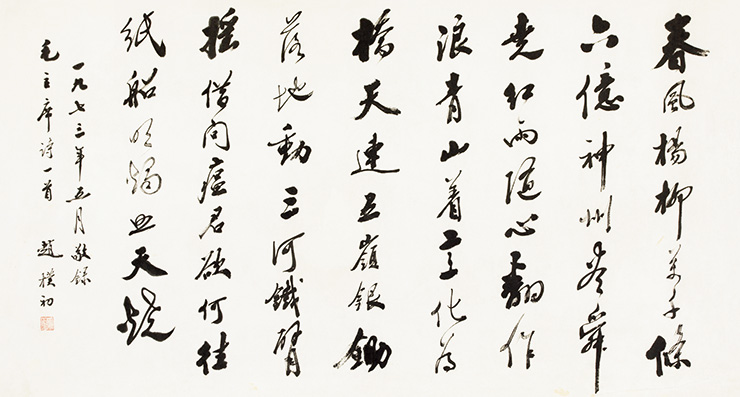 春風楊柳萬千條
六億神州盡舜
堯紅雨隨心翻作
浪青山着意化為
橋天連五嶺銀鋤
落地動三河鐵臂
搖借問瘟君欲何往
紙船明燭照天燒
一九七三年五月敬錄
毛主席詩一首 趙樸初